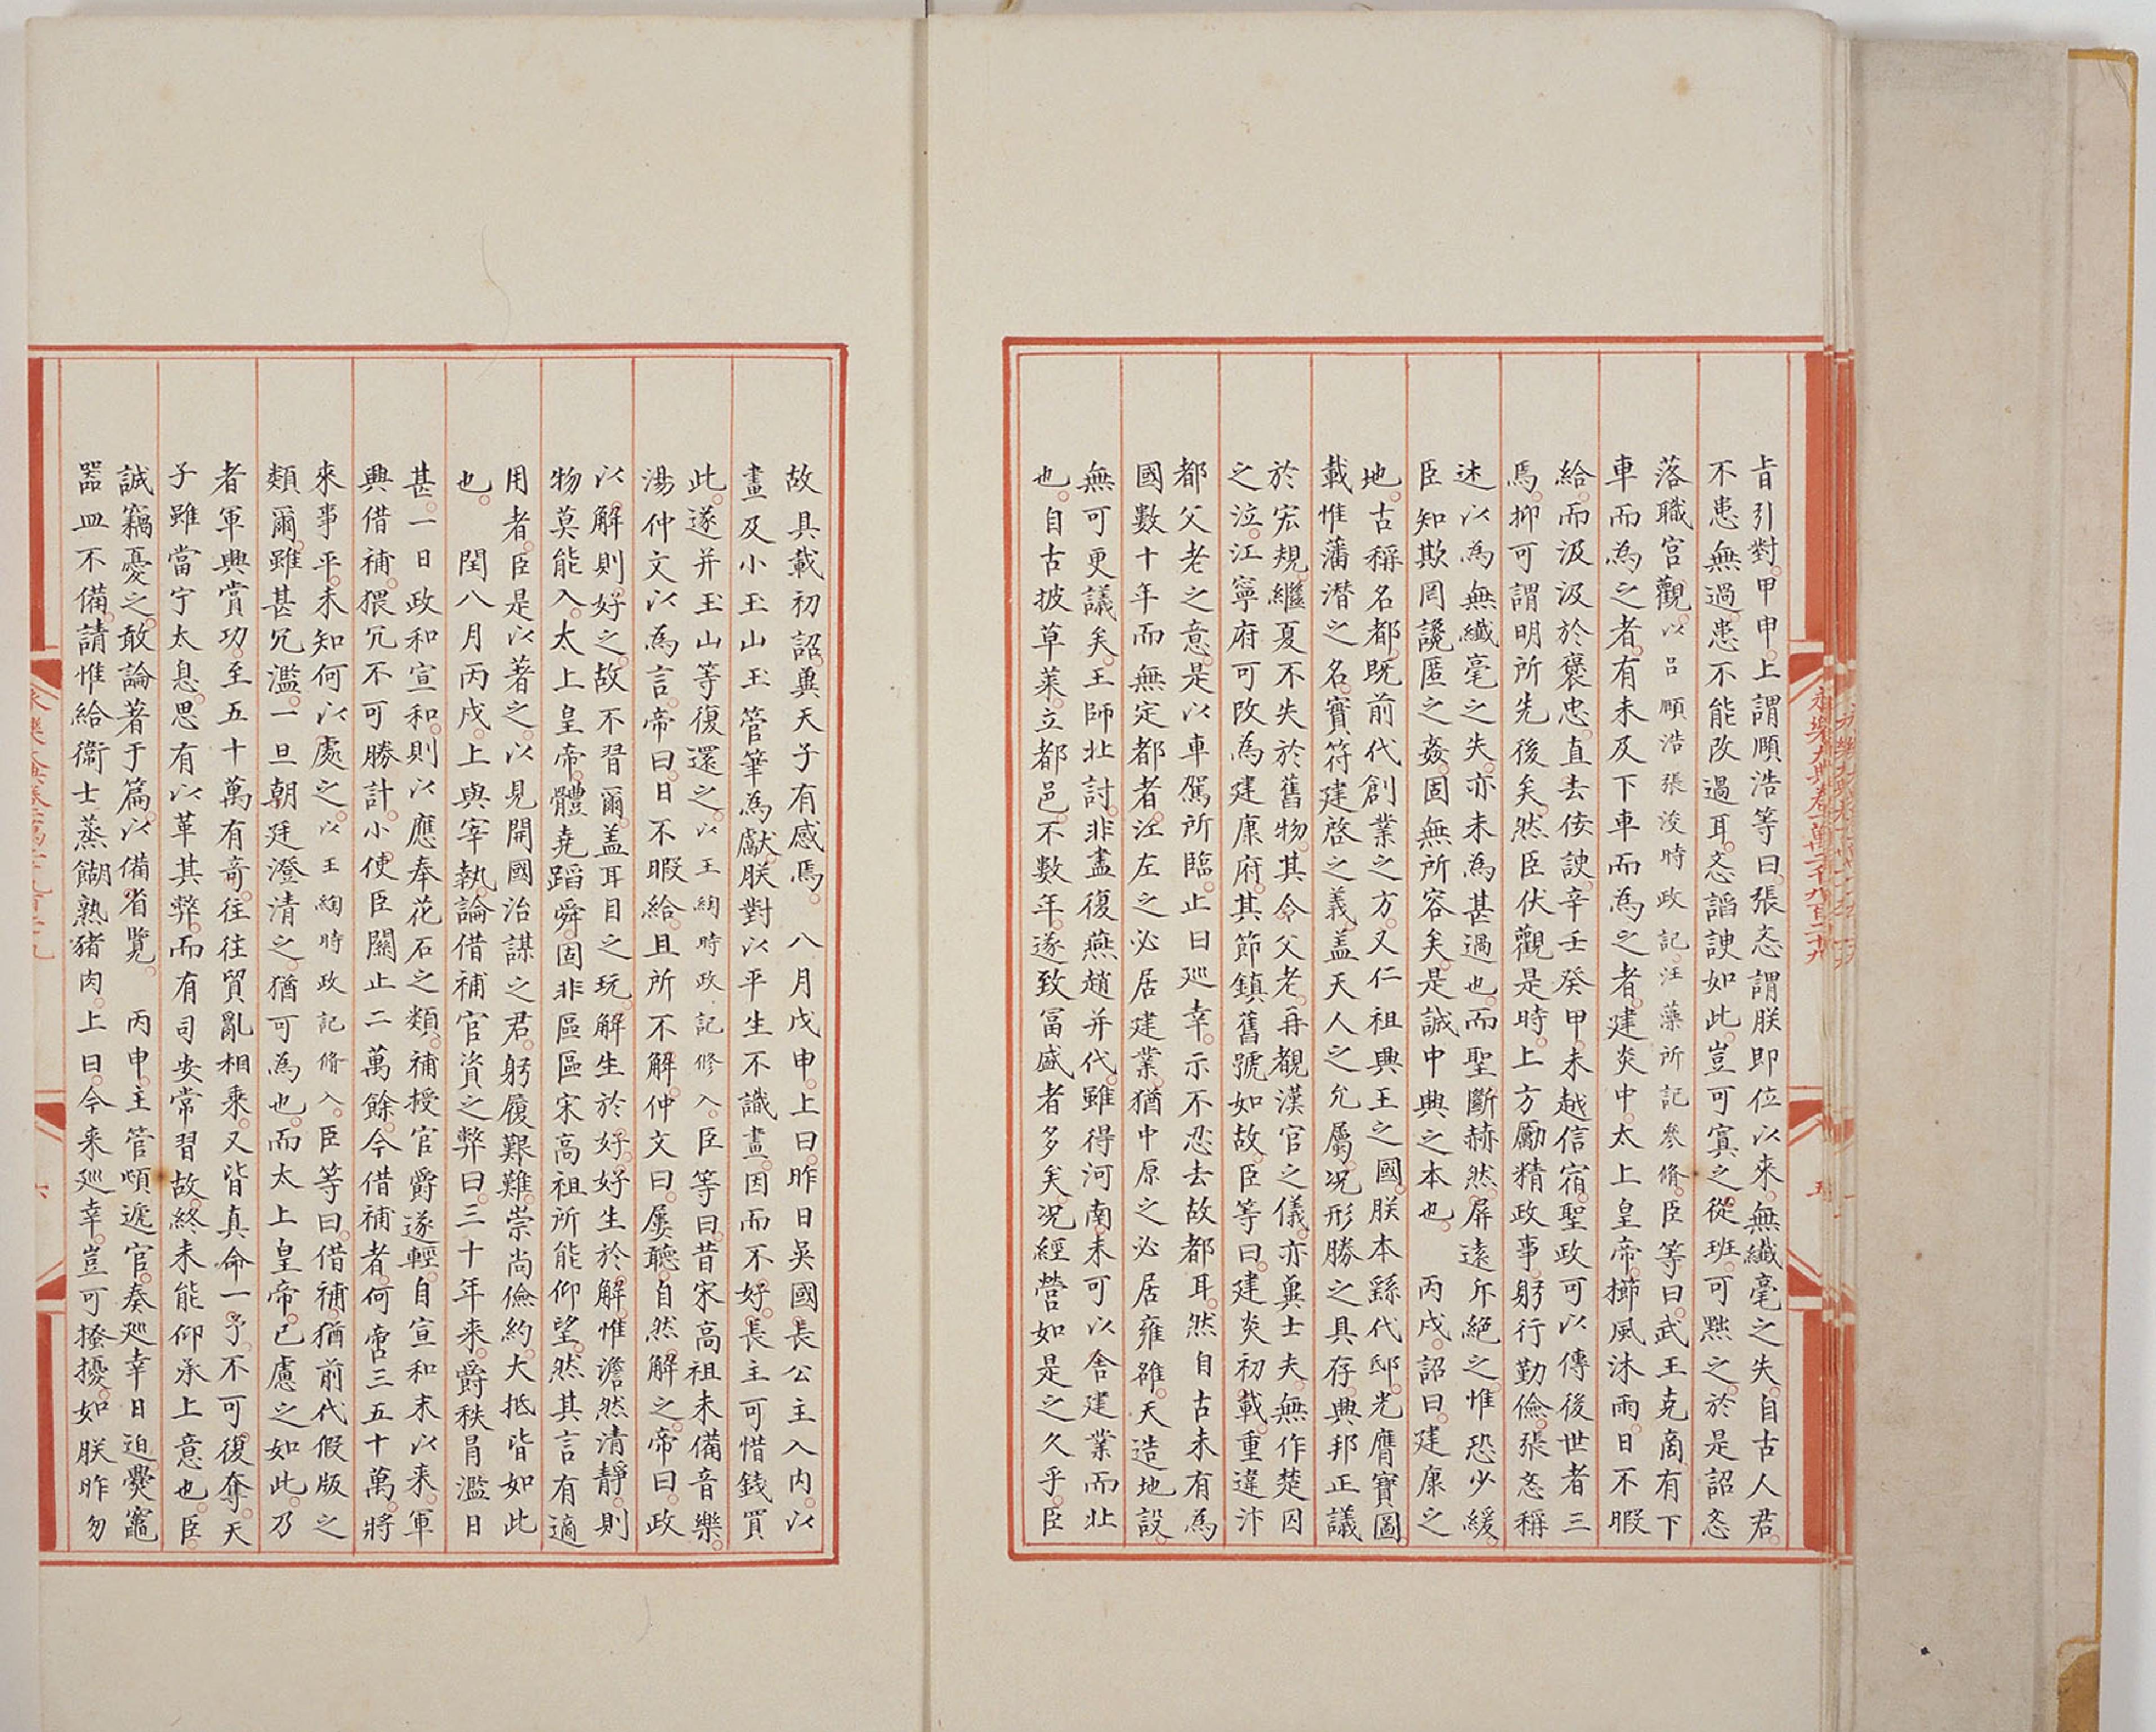 旨引對甲申上謂頤浩等曰張慤謂朕即位以來無纖毫之失自古人君
不患無過患不能改過耳慤謟諛如此豈可寘之從班可黜之於是詔慤
落職宮觀以呂頤浩張浚時政記汪藻所記參脩臣等曰武王克商有下
車而為之者有未及下車而為之者建炎中太上皇帝櫛風沐雨日不暇
給而汲汲於褒忠直去佞諛辛壬癸甲未越信宿聖政可以傳後世者三
焉抑可謂明所先後矣然臣伏觀是時上方勵精政事躬行勤儉張慤稱
述以為無纖毫之失亦未為甚過也而聖斷赫然屏遠斥絕之惟恐少緩
臣知欺罔讒匿之姦固無所容矣是誠中興之本也　丙戌詔曰建康之
地古稱名都既前代創業之方又仁祖興王之國朕本繇代邸光膺寶圖
載惟藩潛之名實符建啓之義蓋天人之允屬況形勝之具存興邦正議
於宏規繼夏不失於舊物其令父老再覩漢官之儀亦兾士夫無作楚囚
之泣江寧府可改為建康府其節鎮舊號如故臣等曰建炎初載重違汴
都父老之意是以車駕所臨止曰廵幸示不忍去故都耳然自古未有為
國數十年而無定都者江左之必居建業猶中原之必居雍雒天造地設
無可更議矣王師北討非盡復燕趙并代雖得河南未可以舍建業而北
也自古披草萊立都邑不數年遂致冨盛者多矣況經營如是之久乎臣
故具載初詔兾天子有感焉　八月戊申上曰昨日吳國長公主入内以
畫及小玉山玉管筆為獻朕對以平生不識畫因而不好長主可惜錢買
此遂并玉山等復還之以王綯時政記修入臣等曰昔宋高祖未備音樂
湯仲文以為言帝曰日不暇給且所不解仲文曰屢聽自然解之帝曰政
以解則好之故不習爾蓋耳目之玩解生於好好生於解惟澹然清靜則
物莫能入太上皇帝體堯蹈舜固非區區宋高祖所能仰望然其言有適
用者臣是以著之以見開國治謀之君躬履艱難崇尚儉約大抵皆如此
也　閏八月丙戌上與宰執論借補官資之弊曰三十年来爵秩冐濫日
甚一日政和宣和則以應奉花石之類補授官爵遂輕自宣和末以来軍
興借補猥冗不可勝計小使臣闕止二萬餘今借補者何啻三五十萬將
來事平未知何以處之以王綯時政記脩入臣等曰借補猶前代假版之
類爾雖甚冗濫一旦朝廷澄清之猶可為也而太上皇帝已慮之如此乃
者軍興賞功至五十萬有奇往往貿亂相乘又皆真命一予不可復奪天
子雖當宁太息思有以革其弊而有司安常習故終未能仰承上意也臣
誠竊憂之敢論著于篇以備省覽　丙申主管頓遞官奏廵幸日迫爨竈
器皿不備請惟給衞士蒸餬熟猪肉上曰今来廵幸豈可搔擾如朕昨匆
永樂大典卷一萬二千九百二十九